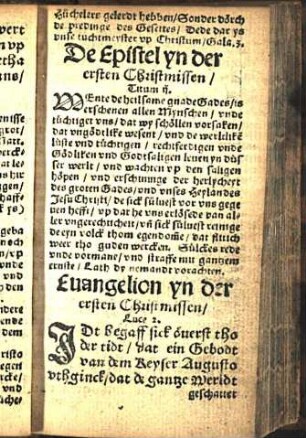 Tüchelers gelerdt hebben/ Sonder dörch
de predinge des Gesettes/ Dede dar ys
vnse tüchtmeyster vp Christum/ Gala. 3.
De Epistel yn der
ersten Christmissen/
Titum ij.
WEnte de heilsame gnade Gades/ is
erschenen allen Mynschen/ vnde
tüchtiget vns/ dat wy schöllen vorsaken/
dat vngödtlike wesent/ vnd de werltlike
lüste vnd tüchtigen/ rechtferdigen vnde
Gödtliken vnd Godtsaligen leuen yn düs
ser werlt/ vnd wachten vp den saligen
höpen/ vnd erschininge der herlycheyt
des groten Gades/ vnd vnses Heylandes
Jesu Christi/ de sick süluest vor vns gege
uen hefft/ vp dat he vns erlösede van al
ler vngerechticheit/ vñ sick süluest reinige
de eyn volck thom egendome/ dat flitich
weer tho guden wercken. Sülckes rede
vnde vormane/ vnd straffe mit gantzem
ernste/ Lath dy nemandt vorachten.
Euangelion yn der
ersten Christmissen/
Luce 2.
IDt begaff sick öuerst tho
der tidt/ dat ein Gebodt
van dem Keyser Augusto
vthginck/ dat de gantze Werldt
geschattet